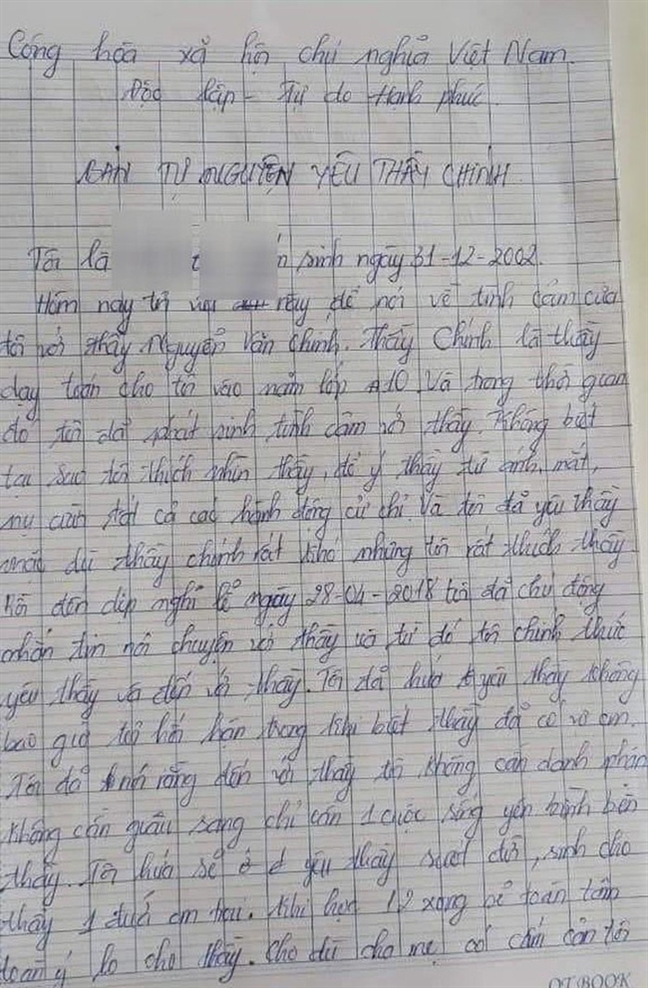 Cộng hòa xã hội chủ nghĩa Việt Nam.
Độc lập - Tự do Hạnh phúc.
BẢN TỰ NGUYỆN YÊU THẦY CHINH
Tôi là sinh ngày 31-12-2002.
Hôm nay tôi này để nói về tình cảm của
tôi với thầy Nguyễn Văn Chinh. Thầy Chinh là thầy
dạy toán cho tôi vào năm lớp 10. Và trong thời gian
đó tôi đã phát sinh tình cảm với thầy. Không biết
tại sao tôi thích nhìn thầy, để ý thầy từ ánh mắt,
nụ cười tất cả các hành động cử chỉ. Và tôi đã yêu thầy
mặc dù thầy chinh rất khó nhưng tôi rất thích thầy
đến dịp nghỉ lễ ngày 28-04-2018 tôi đã chủ động
nhắn tin nói chuyện với thầy và từ đó tôi chính thức
yêu thầy và đến với thầy. Tôi đã hứa yêu thầy không
bao giờ tôi hối hận trong khi biết thầy đã có vợ con.
Tôi đã nói rằng đến với thầy tôi không cần danh phận
không cần giàu sang chỉ cần 1 cuộc sống yên bình bên
thầy. Tôi hứa sẽ yêu thầy suốt đời, sinh cho
thầy 1 đứa con trai. Khi học 12 xong sẽ toàn tâm
toàn ý lo cho thầy. Cho dù cha mẹ có cấm cản tôi